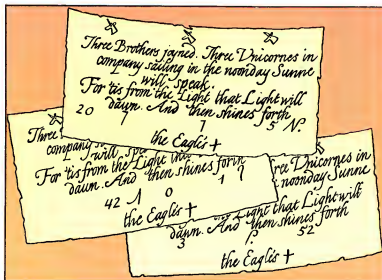 Three Brothers joyned. Three Vnicornes in
company sailing in the noonday Sunne
will speak.
For 'tis from the Light that Light will
dawn. And then shines forth
20 5 N.
the Eagle's +
Three
company
will speak
For 'tis from the Light
dawn. And then shines forth
42 0
the Eagle's +
Vnicornes in
noonday Sunne
Light that Light will
dawn. And then shines forth
3 52
the Eagle's +